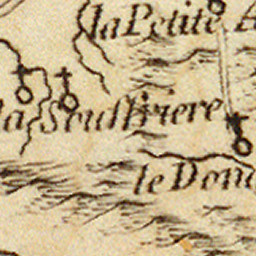 la Petite A
la Souffriere
le Dond